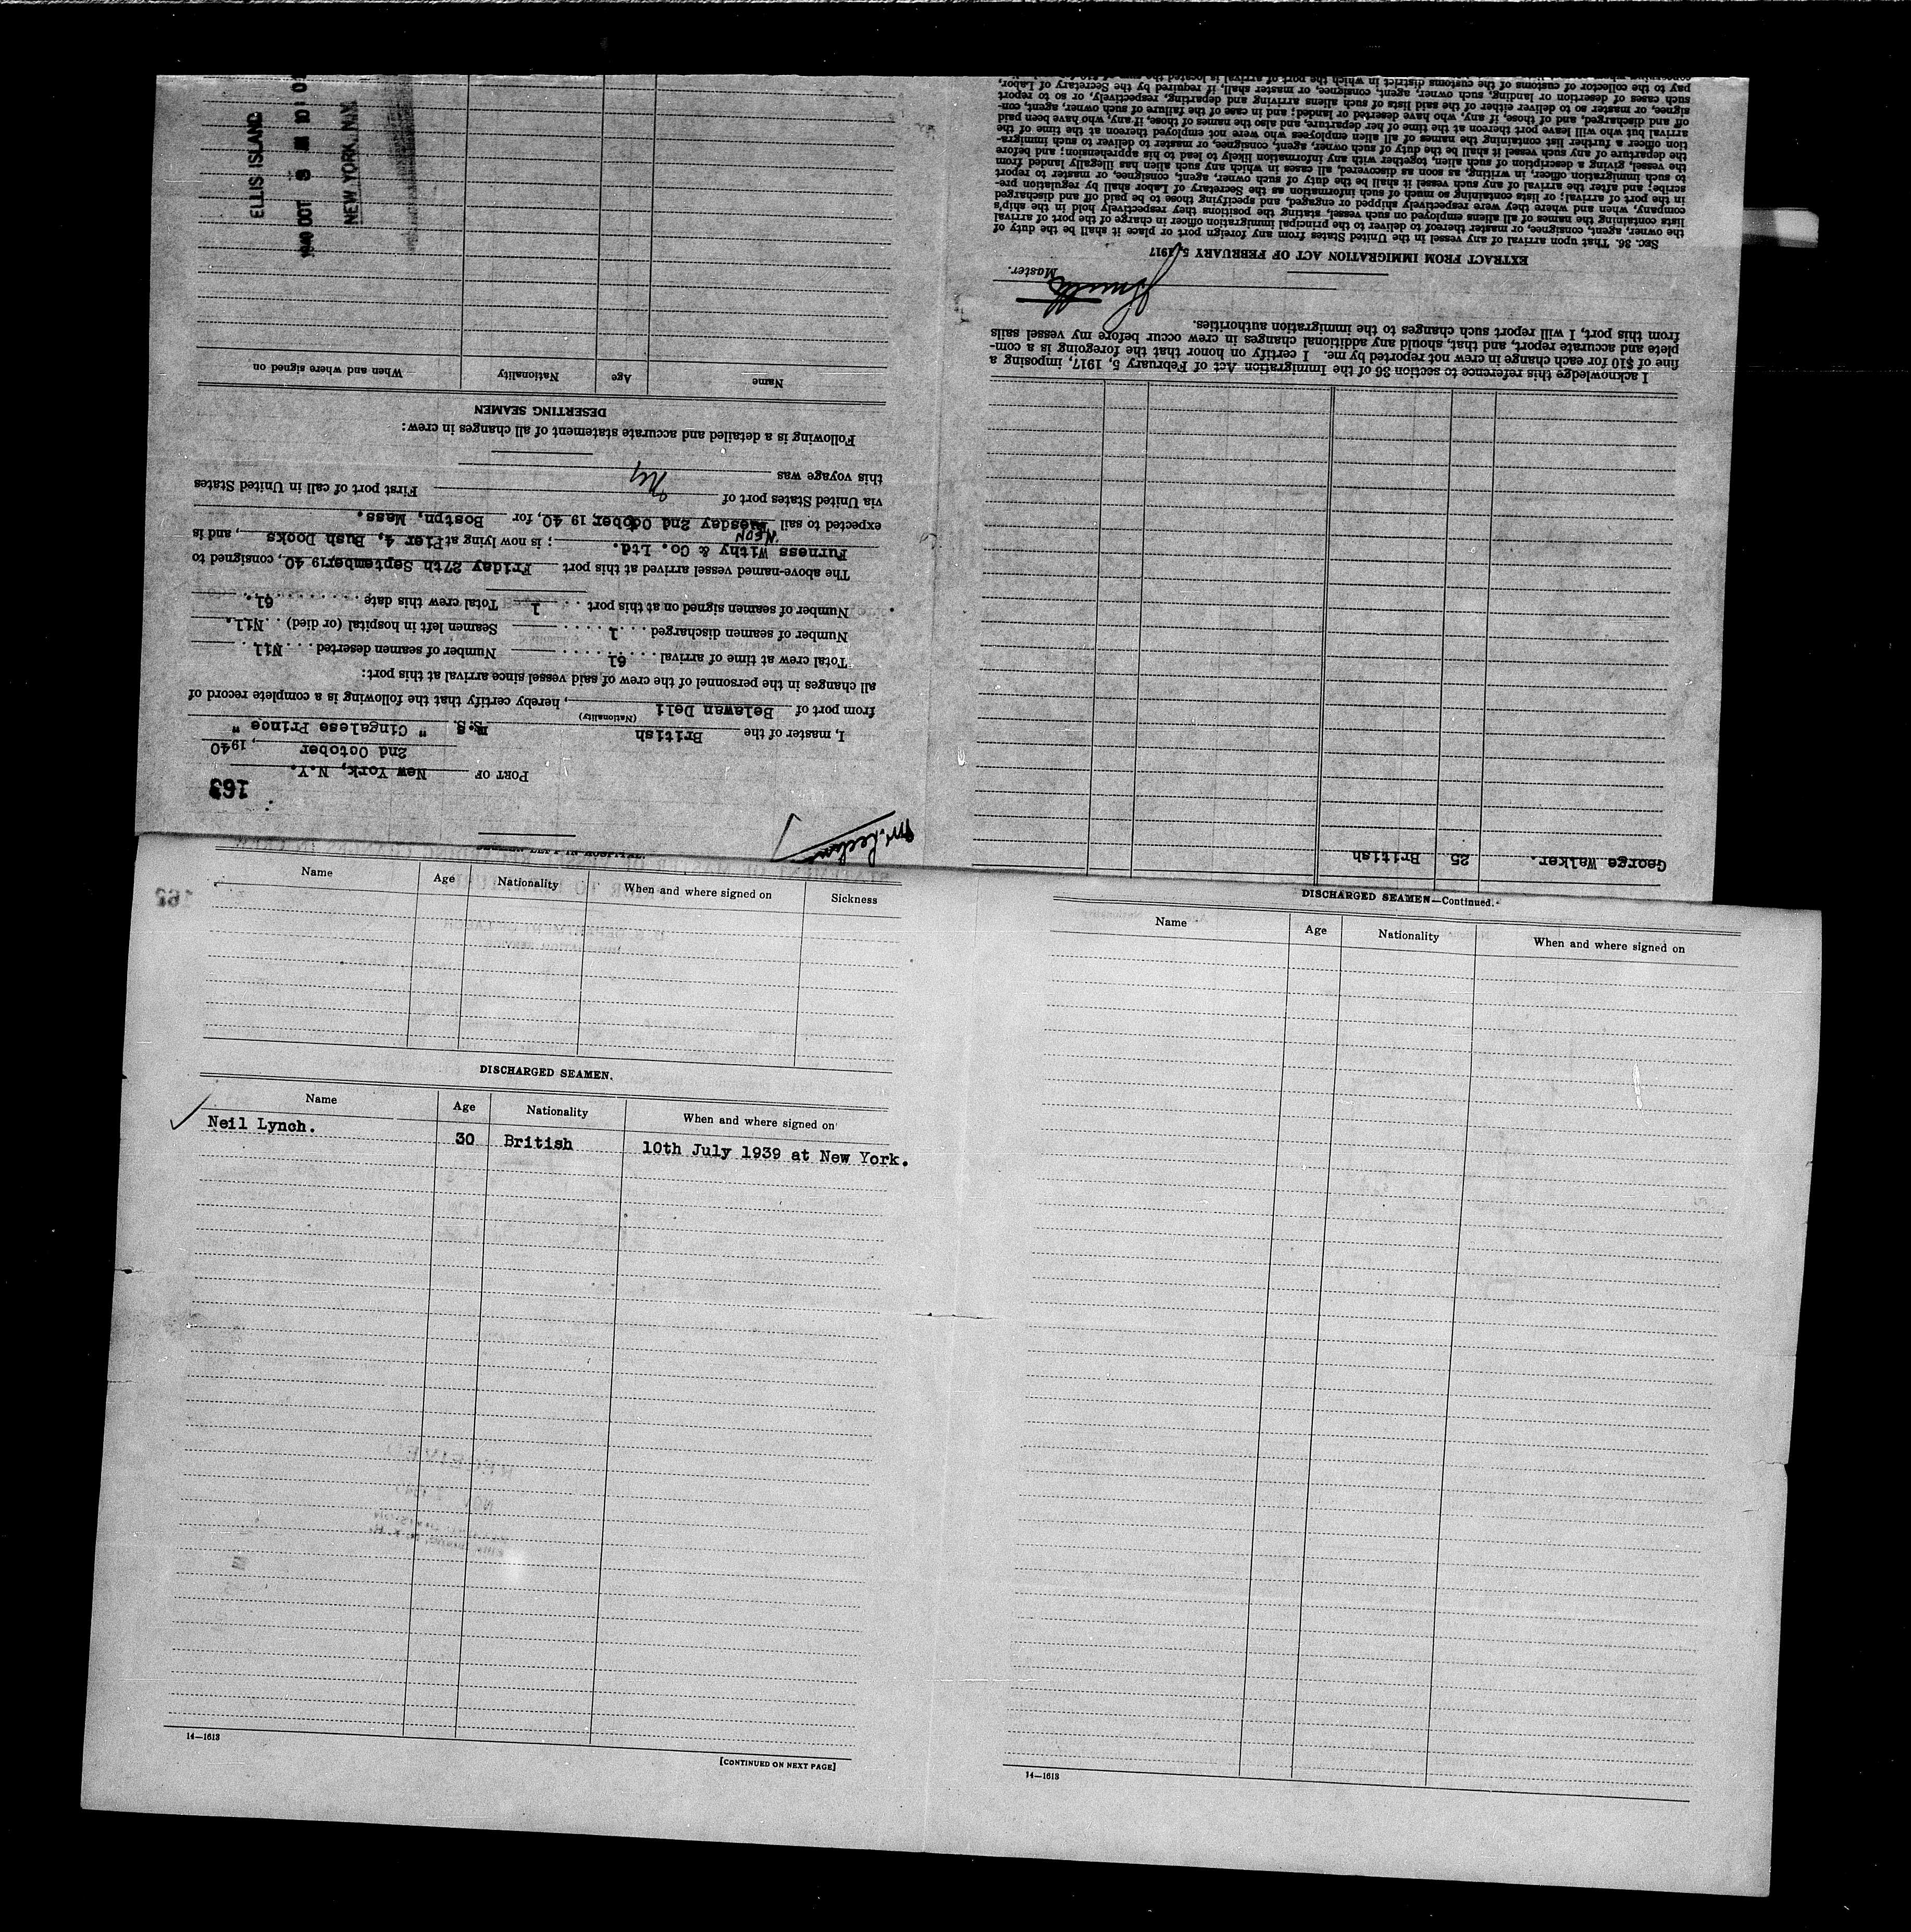 163
PORT OF New York, N.Y.
2nd October, 1940
I, master of the British M.S. " Cingalese Prince "
(Nationality)
from port of Belawan Deli, hereby certify that the following is a complete record of
all changes in the personnel of the crew of said vessel since arrival at this port:
Total crew at time of arrival 61 Number of seamen deserted Nil
Number of seamen discharged 1 Seamen left in hospital (or died) Nil.
Number of seamen signed on at this port 1 Total crew this date 61.
The above-named vessel arrived at this port Friday 27th September, 19 40, consigned to
Furness Withy & Co. Ltd.; is now lying at Pier 4, Bush Docks, and is
expected to sail 2nd October, 19 40, for Bostpn, Mass.
via United States port of First port of call in United States
this voyage was NY
Following is a detailed and accurate statement of all changes in crew:
DESERTING SEAMEN
Name Age Nationality When and where signed on
ELLIS ISLAND
1940 OCT 3 AM 10
NEW YORK, N.Y.
George Walker. 25 British
I acknowledge this reference to section 36 of the Immigration Act of February 5, 1917, imposing a
fine of $10 for each change in crew not reported by me. I certify on honor that the foregoing is a com-
plete and accurate report, and that, should any additional changes in crew occur before my vessel sails
from this port, I will report such changes to the immigration authorities.
Master.
EXTRACT FROM IMMIGRATION ACT OF FEBRUARY 5, 1917
SEC. 36. That upon arrival of any vessel in the United States from any foreign port or place it shall be the duty of
the owner, agent, consignee, or master thereof to deliver to the principal immigration officer in charge of the port of arrival
lists containing the names of all aliens employed on such vessel, stating the positions they respectively hold in the ship's
company, when and where they were respectively shipped or engaged, and specifying those to be paid off and discharged
in the port of arrival; or lists containing so much of such information as the Secretary of Labor shall by regulation pre-
scribe; and after the arrival of any such vessel it shall be the duty of such owner, agent, consignee, or master to report
to such immigration officer, in writing, as soon as discovered, all cases in which any such alien has illegally landed from
the vessel, giving a description of such alien, together with any information likely to lead to his apprehension; and before
the departure of any such vessel it shall be the duty of such owner, agent, consignee, or master to deliver to such immigra-
tion officer a further list containing the names of all alien employees who were not employed thereon at the time of the
arrival but who will leave port thereon at the time of her departure, and also the names of those, if any, who have been paid
off and discharged, and of those, if any, who have deserted or landed; and in case of the failure of such owner, agent, con-
signee, or master so to deliver either of the said lists of such aliens arriving and departing, respectively, or so to report
such cases of desertion or landing, such owner, agent, consignee, or master shall, if required by the Secretary of Labor,
pay to the collector of customs of the customs district in which the port of arrival is located the sum of $10
Name Age Nationality When and where signed on Sickness
DISCHARGED SEAMEN.
Name Age Nationality When and where signed on
Neil Lynch. 30 British 10th July 1939 at New York.
14—1613
[CONTINUED ON NEXT PAGE]
DISCHARGED SEAMEN—Continued.
Name Age Nationality When and where signed on
14—1613